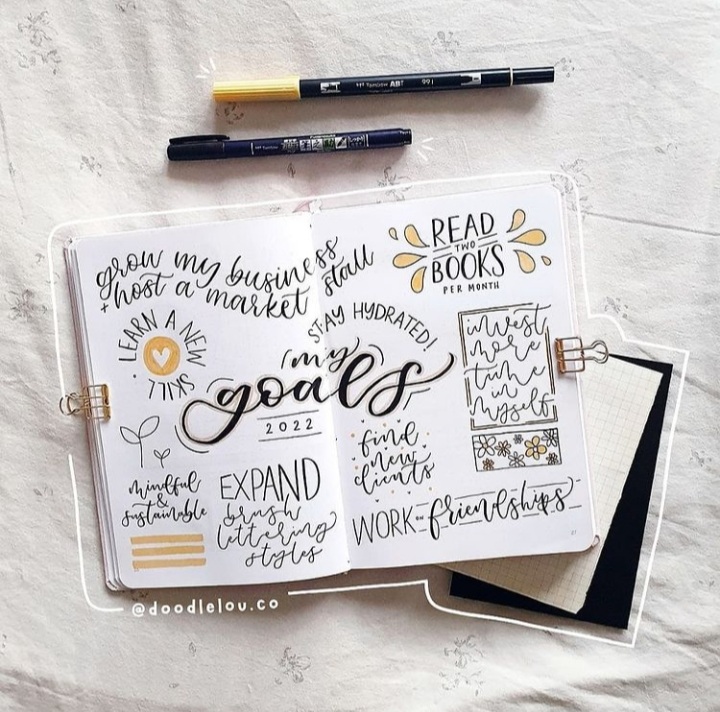 Tombow ABT 991
grow my business
+ host a market stall
READ
TWO
BOOKS
PER MONTH
LEARN A NEW SKILL.
STAY HYDRATED!
my
goals
2022
invest
more
time
in
myself
find
new
clients
mindful
&
sustainable
EXPAND
brush
lettering
styles
WORK on friendships
@doodlelou.co